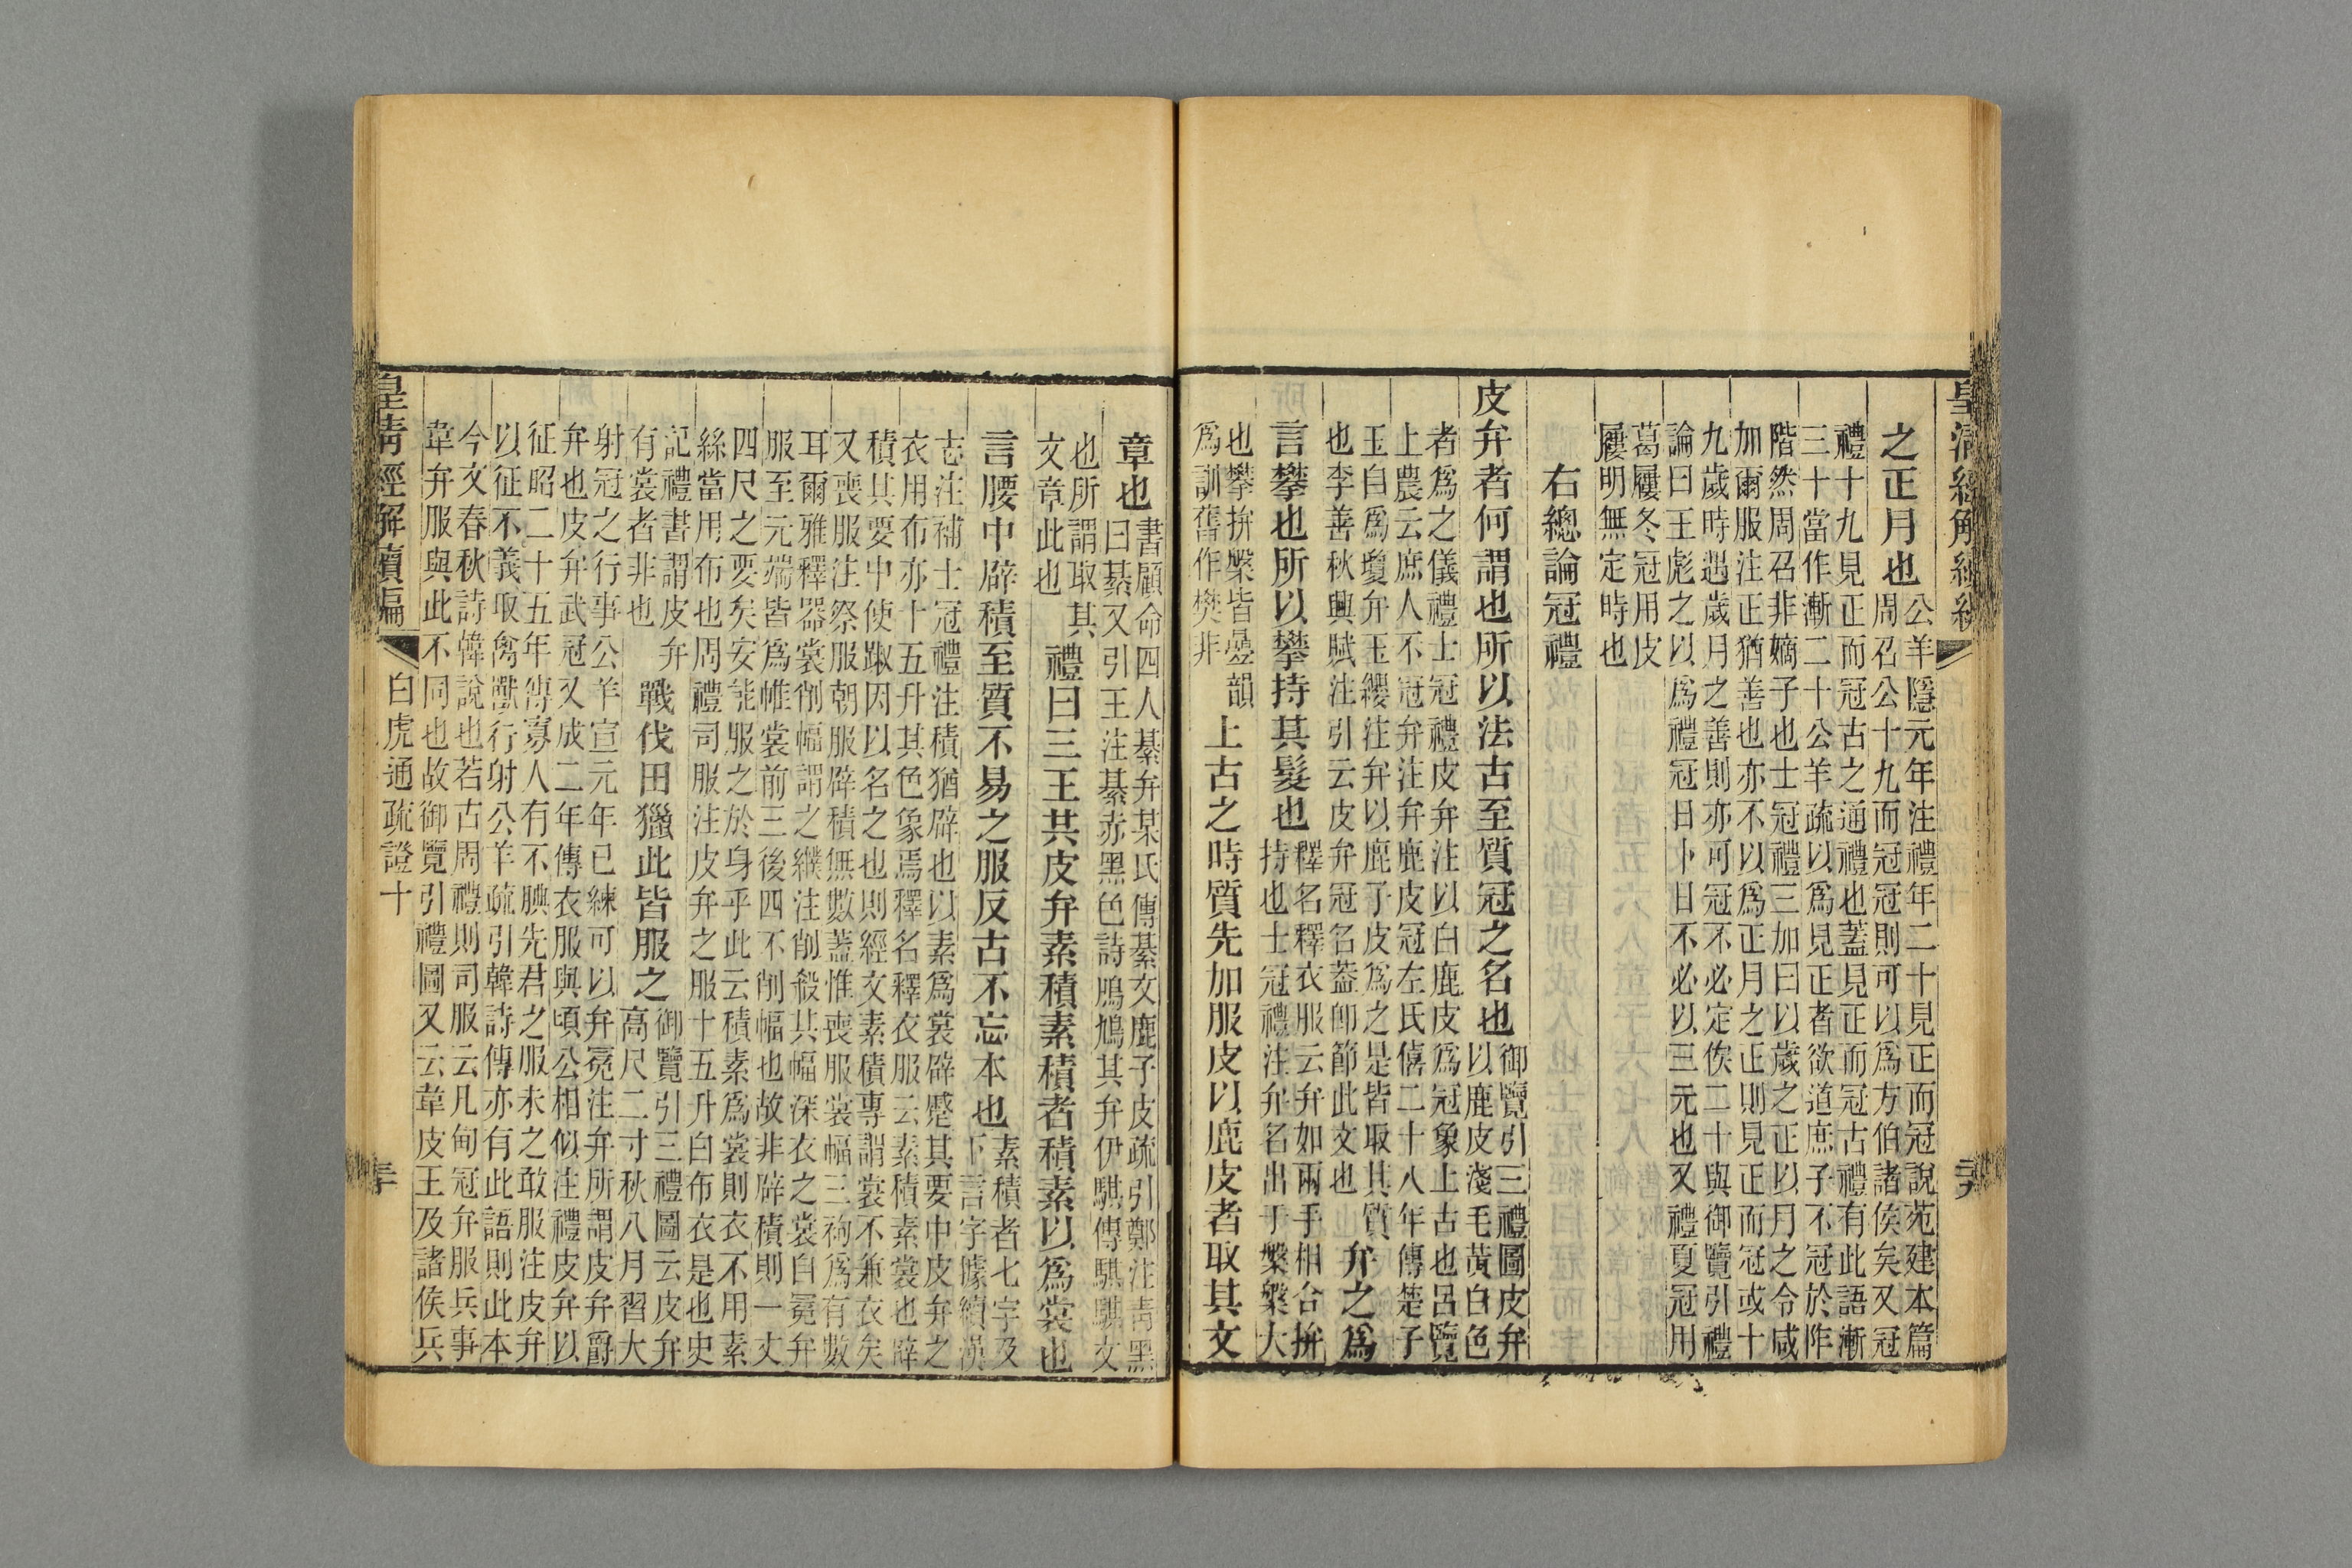 皇清經解續編
之正月也
公羊隱元年注禮年二十見正而冠說苑建本篇
周召公十九而冠冠則可以爲方伯諸侯矣又冠
禮十九見正而冠古之通禮也蓋見正而冠古禮有此語漸
三十當作漸二十公羊疏以爲見正者欲道庶子不冠於阼
階然周召非嫡子也士冠禮三加曰以歲之正以月之令咸
加爾服注正猶善也亦不以爲正月之正則見正而冠或十
九歲時遇歲月之善則亦可冠不必定俟二十與御覽引禮
論曰王彪之以爲禮冠日卜日不必以三元也又禮夏冠用
葛屨冬冠用皮
屨明無定時也
右總論冠禮
皮弁者何謂也所以法古至質冠之名也
御覽引三禮圖皮弁
以鹿皮淺毛黃白色
者爲之儀禮士冠禮皮弁注以白鹿皮爲冠象上古也呂覽
上農云庶人不冠弁注弁鹿皮冠左氏僖二十八年傳楚子
玉自爲瓊弁玉纓注弁以鹿子皮爲之是皆取其質
也李善秋興賦注引云皮弁冠名蓋卽節此文也
弁之爲
言攀也所以攀持其髮也
釋名釋衣服云弁如兩手相合拚
持也士冠禮注弁名出于槃槃大
也攀拚槃皆疊韻
爲訓舊作樊非
上古之時質先加服皮以鹿皮者取其文
章也
書顧命四人綦弁某氏傳綦文鹿子皮疏引鄭注靑黑
曰綦又引王注綦赤黑色詩鳲鳩其弁伊騏傳騏騏文
也所謂取其
文章此也
禮曰三王共皮弁素積素積者積素以爲裳也
言腰中辟積至質不易之服反古不忘本也
素積者七字及
下言字據續漢
志注補士冠禮注積猶辟也以素爲裳辟蹙其要中皮弁之
衣用布亦十五升其色象焉釋名釋衣服云素積素裳也辟
積其要中使踧因以名之也則經文素積專謂裳不兼衣矣
又喪服注祭服朝服辟積無數蓋惟喪服裳幅三袧爲有數
耳爾雅釋器裳削幅謂之纀注削殺其幅深衣之裳自冕弁
服至元端皆爲帷裳前三後四不削幅也故非辟積則一丈
四尺之要矣安能服之於身乎此云積素爲裳則衣不用素
絲當用布也周禮司服注皮弁之服十五升白布衣是也史
記禮書謂皮弁
有裳者非也
戰伐田獵此皆服之
御覽引三禮圖云皮弁
高尺二寸秋八月習大
射冠之行事公羊宣元年已練可以弁冕注弁所謂皮弁爵
弁也皮弁武冠又成二年傳衣服與頃公相似注禮皮弁以
征昭二十五年傳寡人有不腆先君之服未之敢服注皮弁
以征不義取禽獸行射公羊疏引韓詩傳亦有此語則此本
今文春秋詩韓說也若古周禮則司服云凡甸冠弁服兵事
韋弁服與此不同也故御覽引禮圖又云韋皮王及諸侯兵
皇淸經解續編
白虎通疏證十